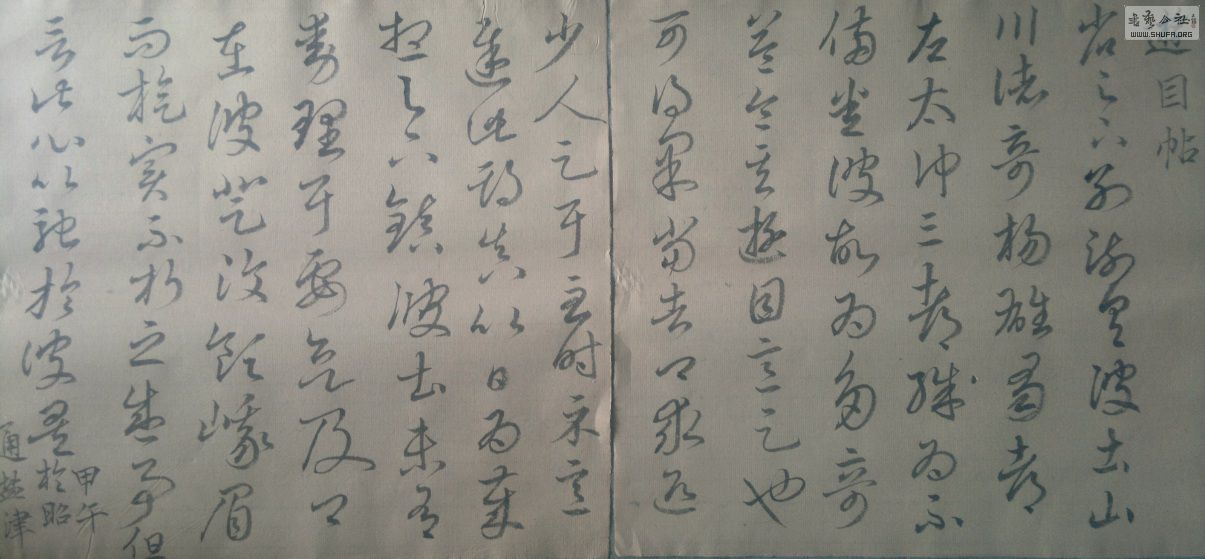 遊目帖
省足下别疏具彼土山
川諸奇楊雄蜀都
左太冲三都殊為不
備悉彼故為多奇
益令其遊目意足也
可得果當告卿求迎
少人足耳至時示意
遲此期真以日為歲
想足下鎮彼土未有
動理耳要欲及卿
在彼登汶領峨眉
而旋實不朽之盛事但
言此心以馳於彼矣
甲午
於昭
通盐津
书艺公社
WWW.SHUFA.ORG